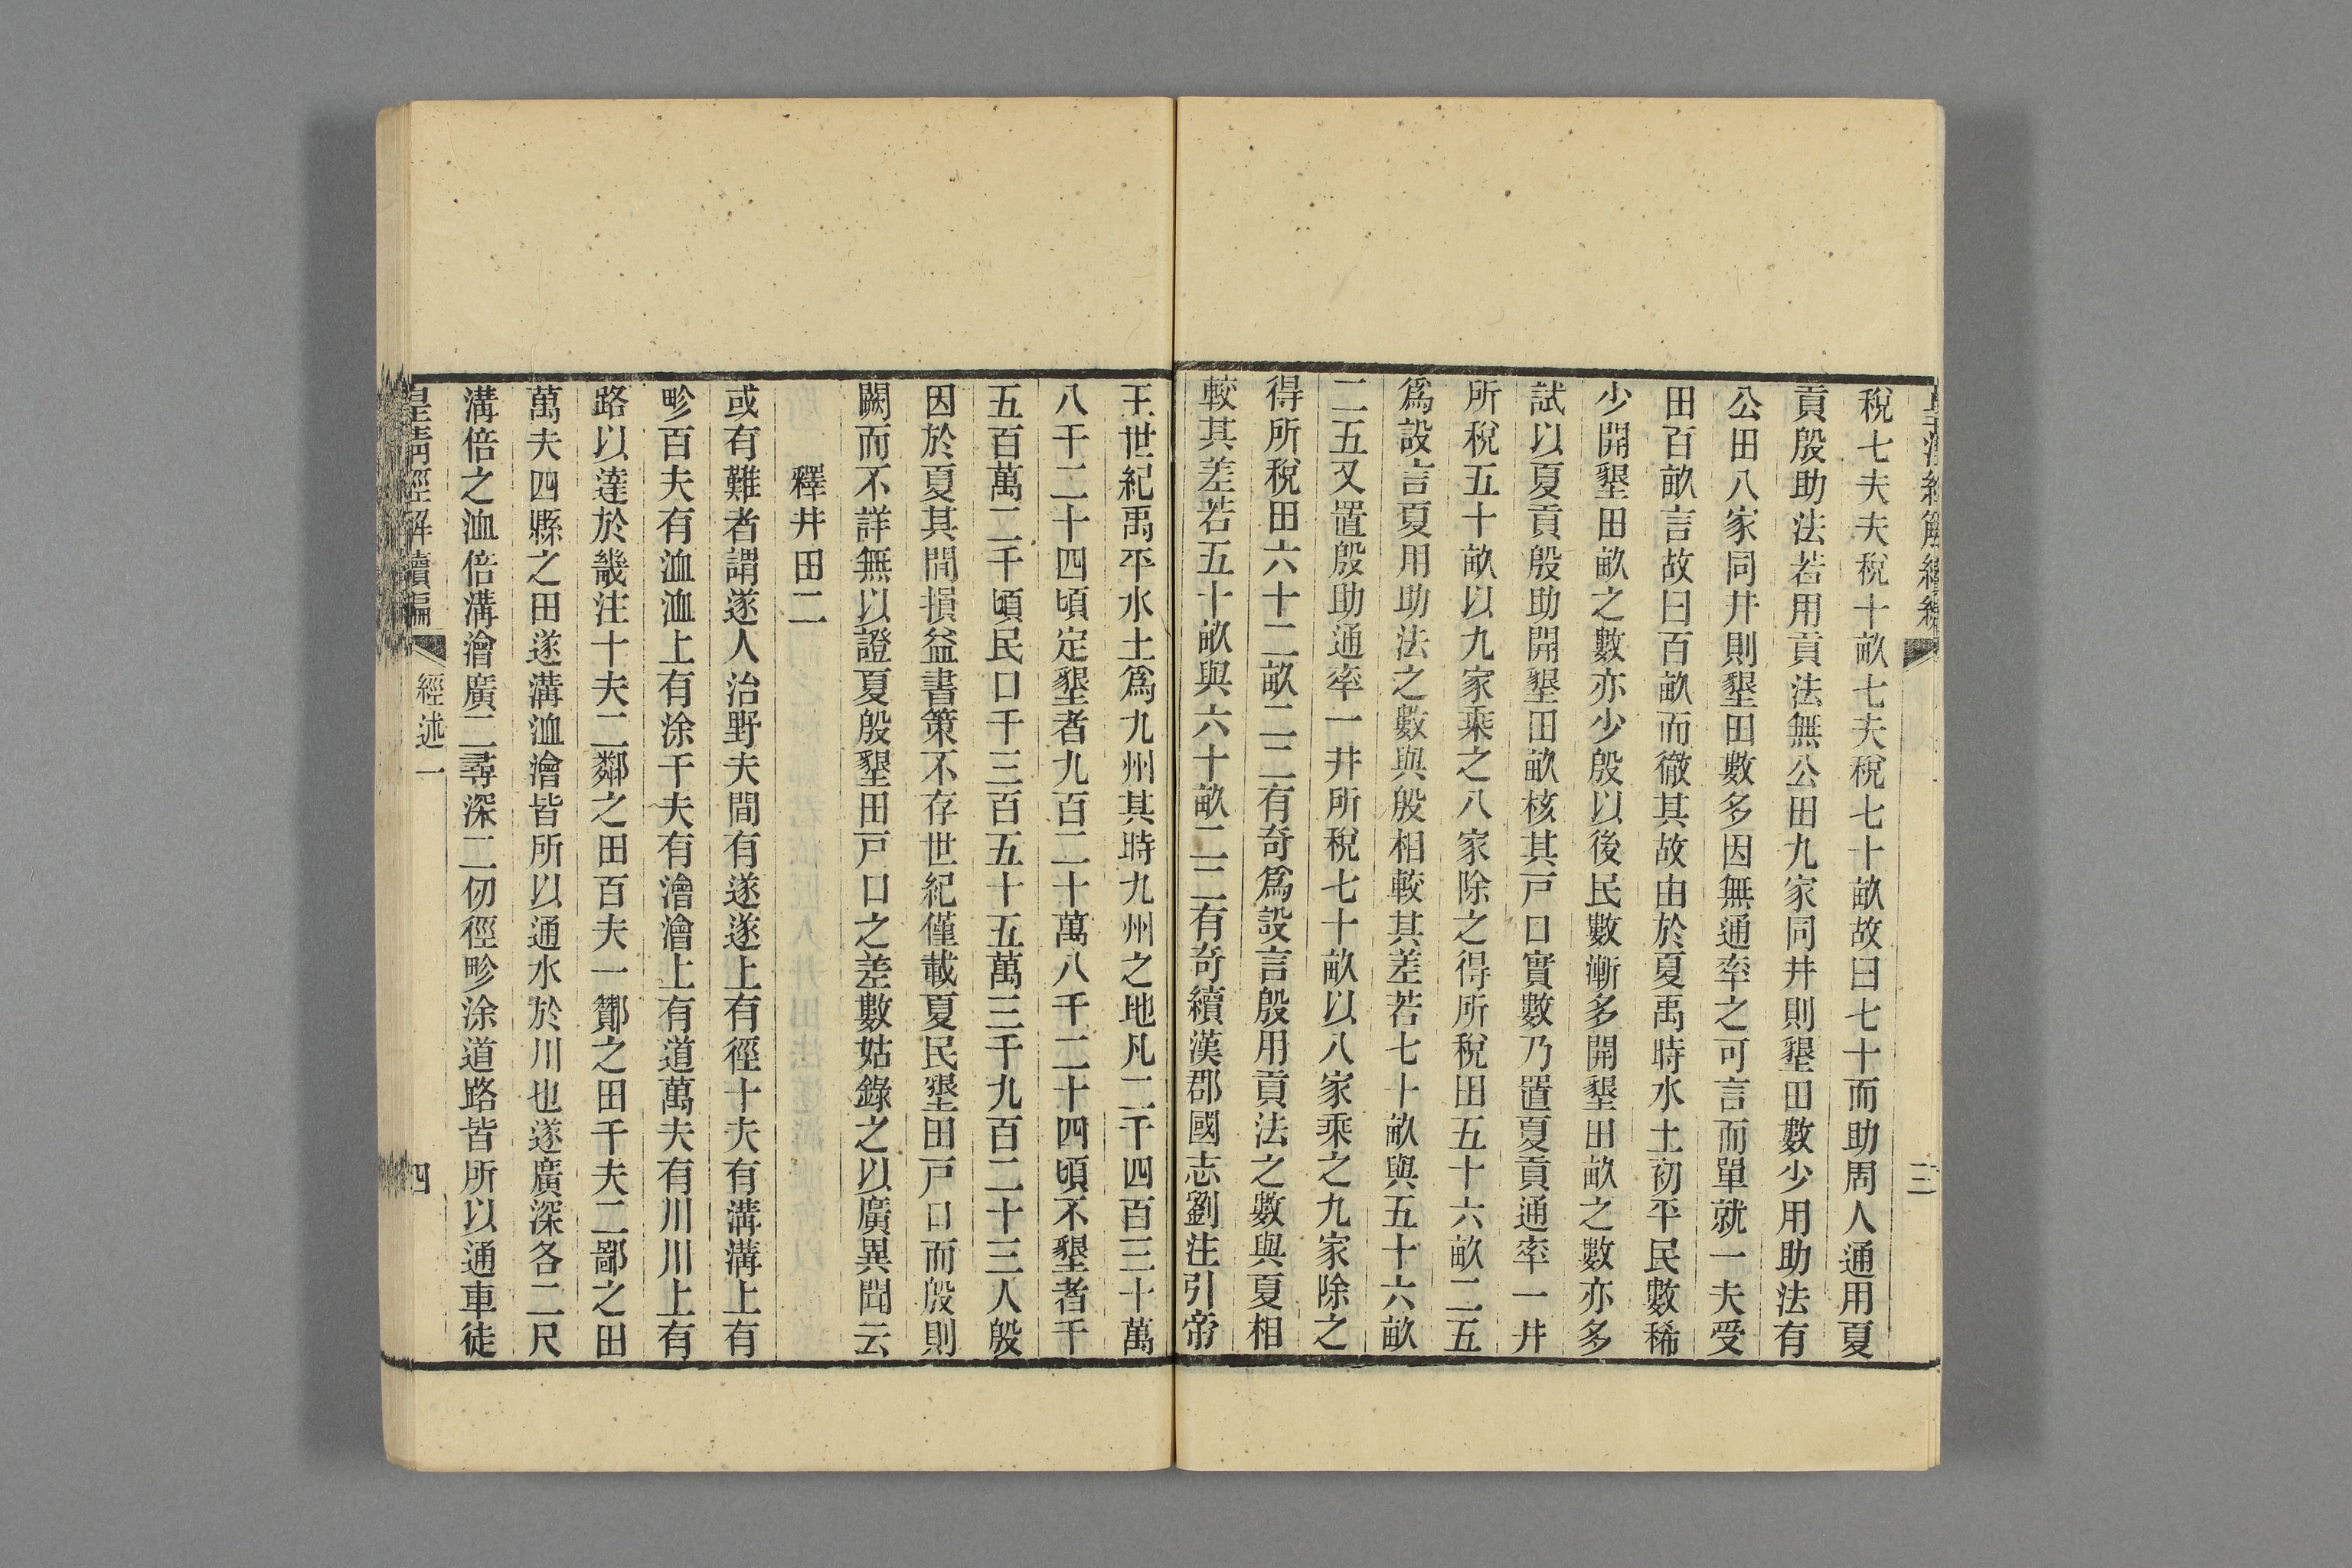 稅七夫夫稅十畝七夫稅七十畝故曰七十而助周人通用夏
貢殷助法若用貢法無公田九家同井則墾田數少用助法有
公田八家同井則墾田數多因無通率之可言而單就一夫受
田百畝言故曰百畝而徹其故由於夏禹時水土初平民數稀
少開墾田畝之數亦少殷以後民數漸多開墾田畝之數亦多
試以夏貢殷助開墾田畝核其戸口實數乃置夏貢通率一井
所稅五十畝以九家乘之八家除之得所稅田五十六畝二五
爲設言夏用助法之數與殷相較其差若七十畝與五十六畝
二五又置殷助通率一井所稅七十畝以八家乘之九家除之
得所稅田六十二畝二二有奇爲設言殷用貢法之數與夏相
較其差若五十畝與六十畝二二有奇續漢郡國志劉注引帝
三
王世紀禹平水土爲九州其時九州之地凡二千四百三十萬
八千二十四頃定墾者九百二十萬八千二十四頃不墾者千
五百萬二千頃民口千三百五十五萬三千九百二十三人殷
因於夏其間損益書策不存世紀僅載夏民墾田戸口而殷則
闕而不詳無以證夏殷墾田戸口之差數姑錄之以廣異聞云
釋井田二
或有難者謂遂人治野夫間有遂遂上有徑十夫有溝溝上有
畛百夫有洫洫上有涂千夫有澮澮上有道萬夫有川川上有
路以達於畿注十夫二鄰之田百夫一酇之田千夫二鄙之田
萬夫四縣之田遂溝洫澮皆所以通水於川也遂廣深各二尺
溝倍之洫倍溝澮廣二尋深二仞徑畛涂道路皆所以通車徒
皇淸經解續編 經述一 四